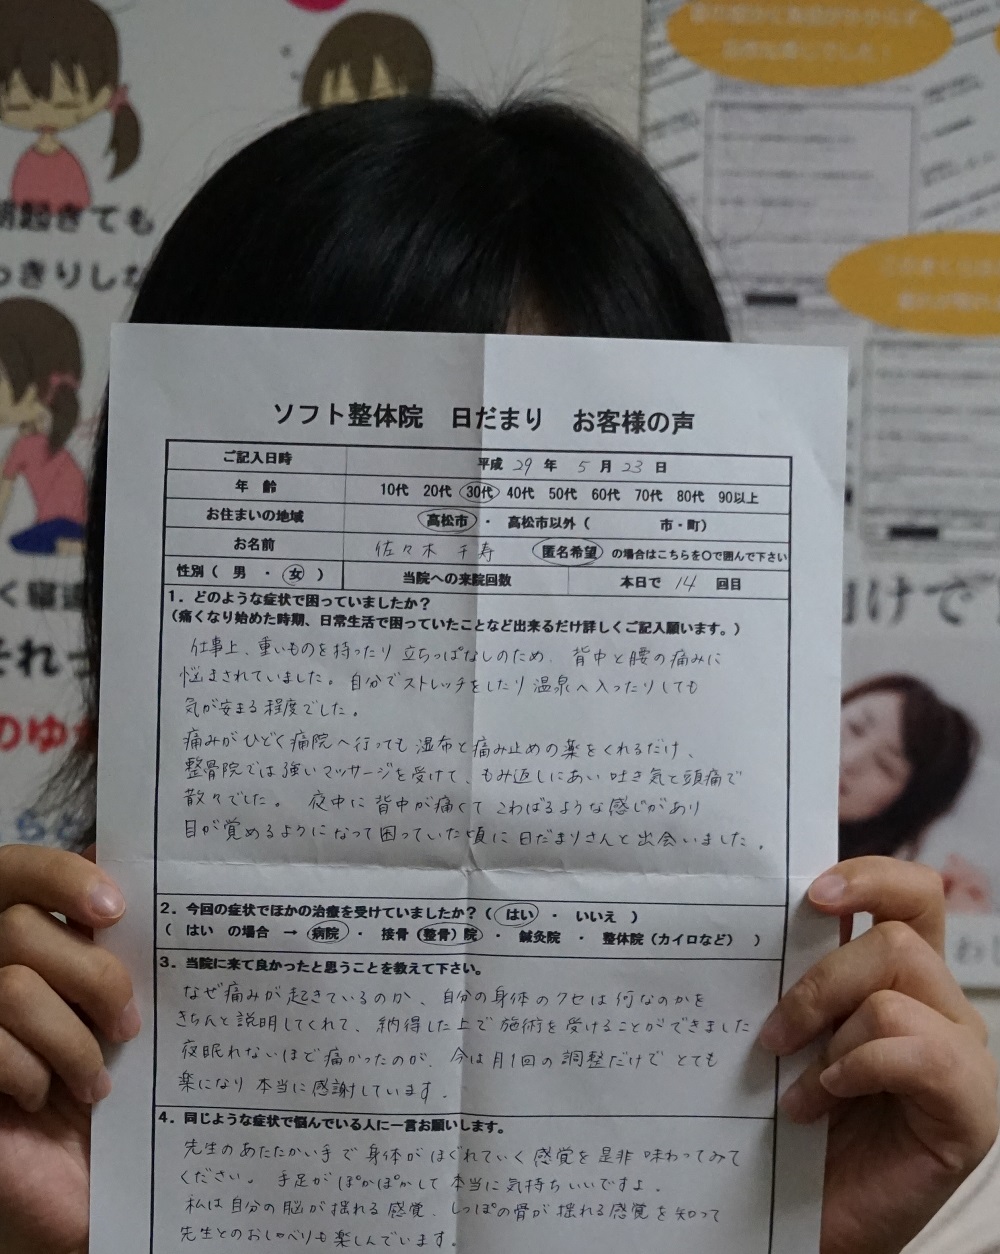 朝起きても
っきりしな
く寝
それっ
のゆ
向けで
ソフト整体院 日だまり お客様の声
ご記入日時 平成 29 年 5 月 23 日
年 齢 10代 20代 30代 40代 50代 60代 70代 80代 90以上
お住まいの地域 高松市 ・ 高松市以外( 市・町)
お名前 佐々木 千寿 匿名希望 の場合はこちらを〇で囲んで下さい
性別( 男 ・ 女 ) 当院への来院回数 本日で 14 回目
1.どのような症状で困っていましたか?
(痛くなり始めた時期、日常生活で困っていたことなど出来るだけ詳しくご記入願います。)
仕事上、重いものを持ったり 立ちっぱなしのため、背中と腰の痛みに
悩まされていました。自分でストレッチをしたり 温泉へ入ったりしても
気が安まる程度でした。
痛みがひどく痛院へ行っても 湿布と痛み止めの薬をくれるだけ、
整骨院では強いマッサージを受けて、もみ返しにあい 吐き気と頭痛で
散々でした。 夜中に背中が痛くて こわばるような感じがあり
目が覚めるようになって困っていた頃に 日だまりさんと出会いました。
2.今回の症状でほかの治療を受けていましたか?( はい ・ いいえ )
( はい の場合 → 病院 ・ 接骨(整骨)院 ・ 鍼灸院 ・ 整体院(カイロなど) )
3.当院に来て良かったと思うことを教えて下さい。
なぜ痛みが起きているのか、自分の身体のクセは何なのかを
きちんと説明してくれて、納得した上で施術を受けることができました
夜眠れないほど痛かったのが、今は月1回の調整だけで とても
楽になり 本当に感謝しています。
4.同じような症状で悩んでいる人に一言お願いします。
先生のあたたかい手で身体がほぐれていく感覚を是非味わってみて
ください。 手足がぽかぽかして本当に気持ちいいですよ。
私は自分の脳が揺れる感覚、しっぽの骨が揺れる感覚を知って
先生とのおしゃべりも楽しんでいます。